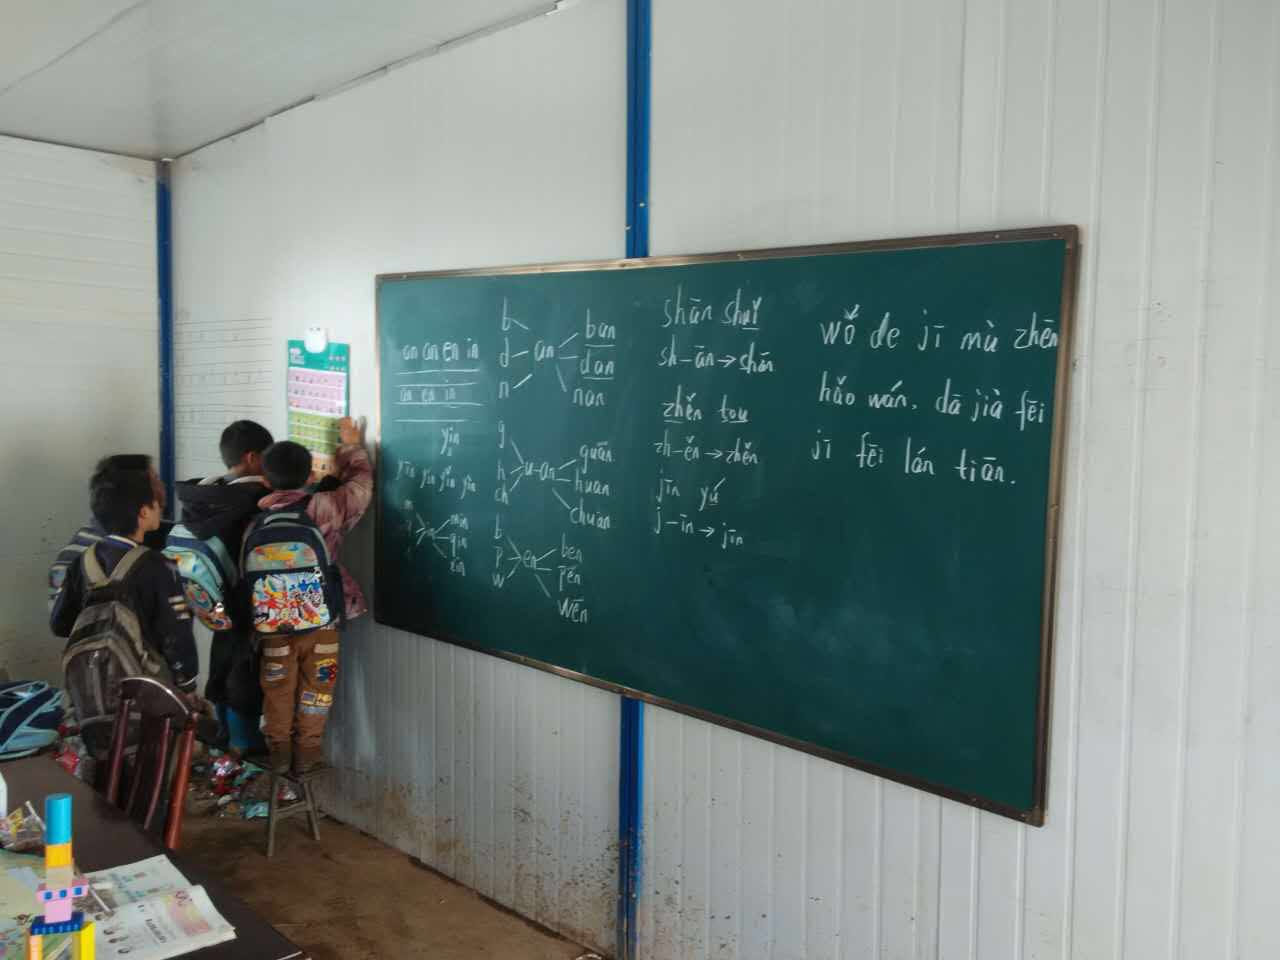 an an en in
an en in
yīn
yīn yín yǐn yìn
min
qin
b
d
n
an
ban
dan
nan
g
h
ch
u-an
guān
huan
chuān
b
p
w
en
ben
pén
wēn
shān shuǐ
sh-ān→shān
zhěn tou
zh-ěn→zhěn
jīn yú
j-īn→jīn
wǒ de jī mù zhēn
hǎo wán, dā jià fēi
jī fēi lán tiān.